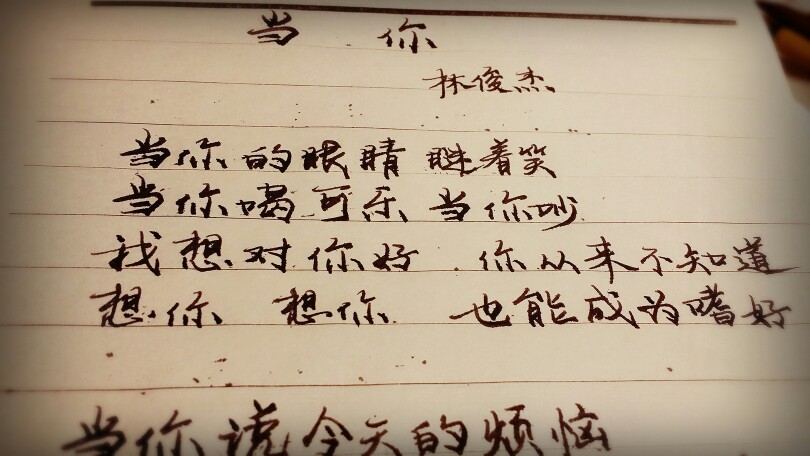 当 你
林俊杰
当你的眼睛眯着笑
当你喝可乐 当你吵
我想对你好 你从来不知道
想你 想你 也能成为嗜好
当你说今天的烦恼